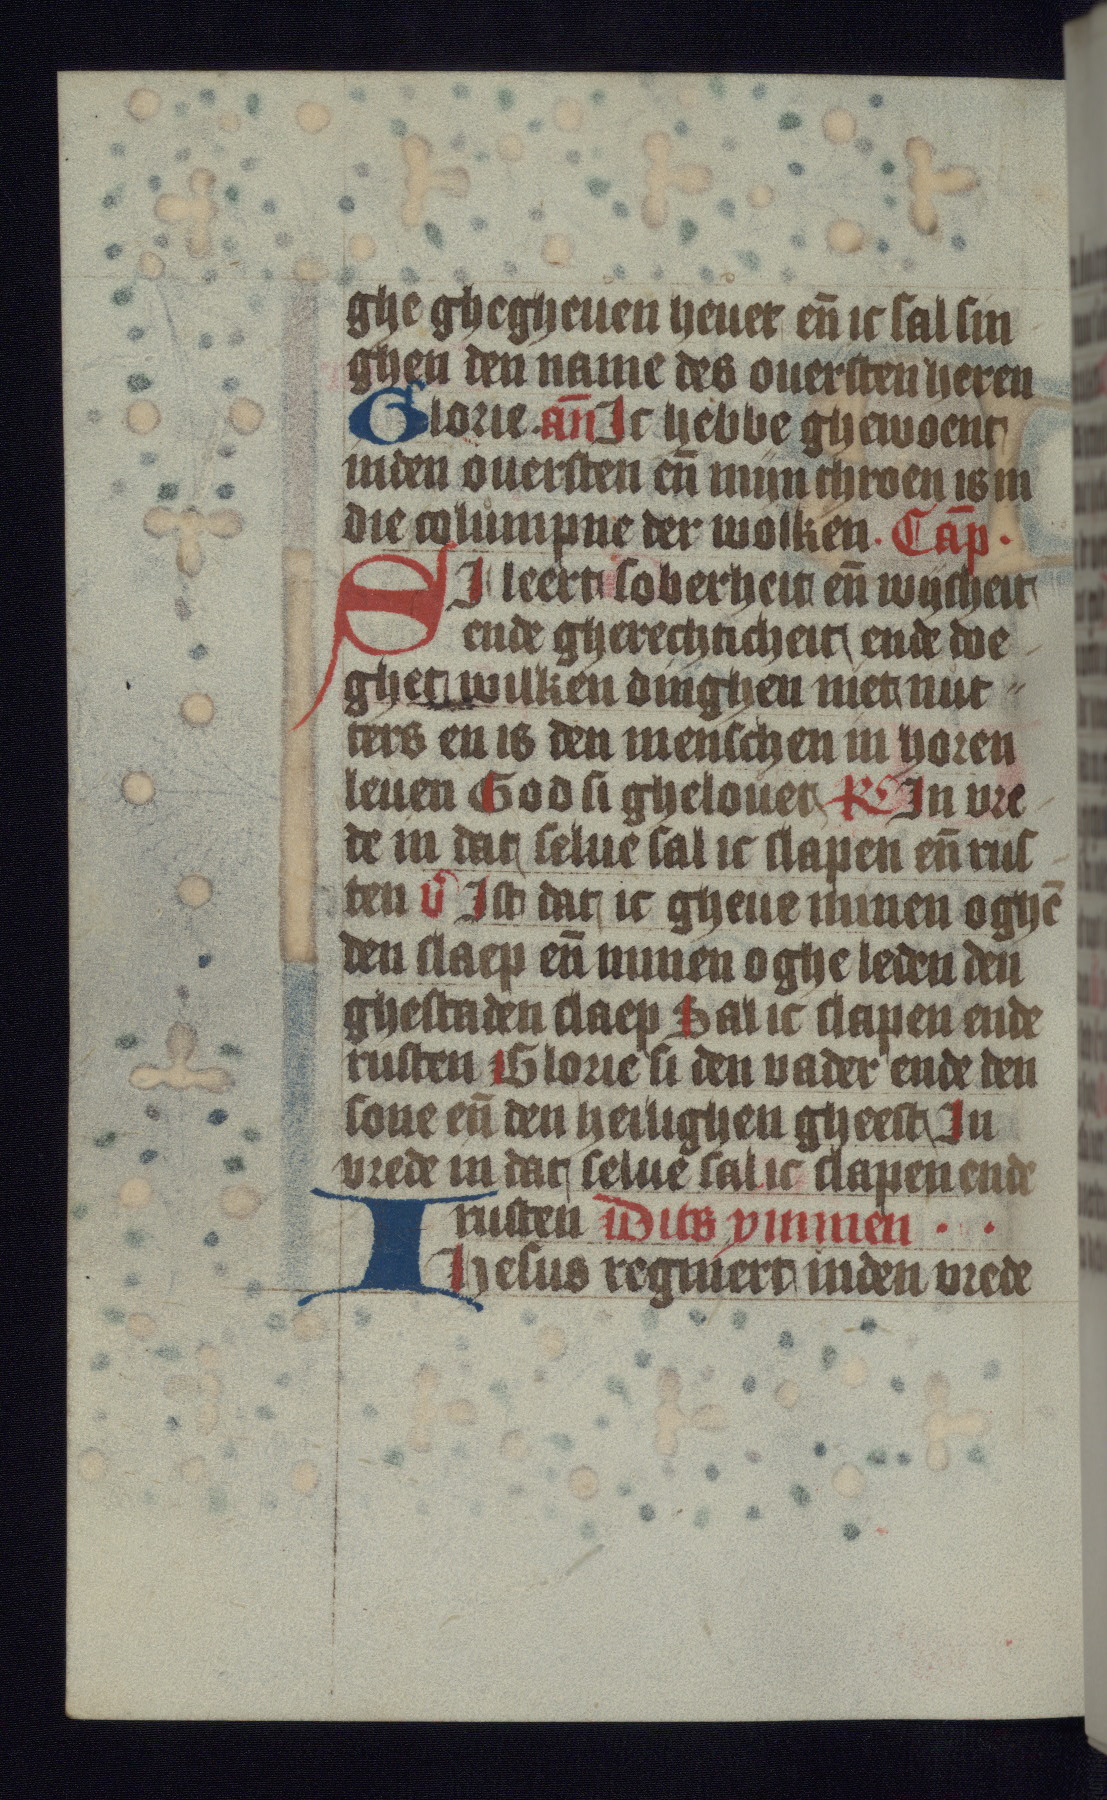 ghe ghegheuen heuet en̄ ic sal sin
ghen den name des ouersten heren
Glorie. an̄ Ic hebbe ghewoent
inden ouersten en̄ mijn throen is in
die columpne der wolken. Cap̄.
SI leert soberheit en̄ wijsheit
ende gherechticheit ende doe
ghet wilken dinghen niet nut
ters en is den menschen in horen
leuen God si ghelouet R In vre
de in dat selue sal ic slapen en̄ rus
ten v̄ Ist dat ic gheue minen oghē
den slaep en̄ minen oghe leden den
ghestaden slaep Sal ic slapen ende
rusten Glorie si den vader ende den
sone en̄ den heilighen gheest In
vrede in dat selue sal ic slapen ende
rusten Dits ymmen . .
Ihesus regniert inden vrede